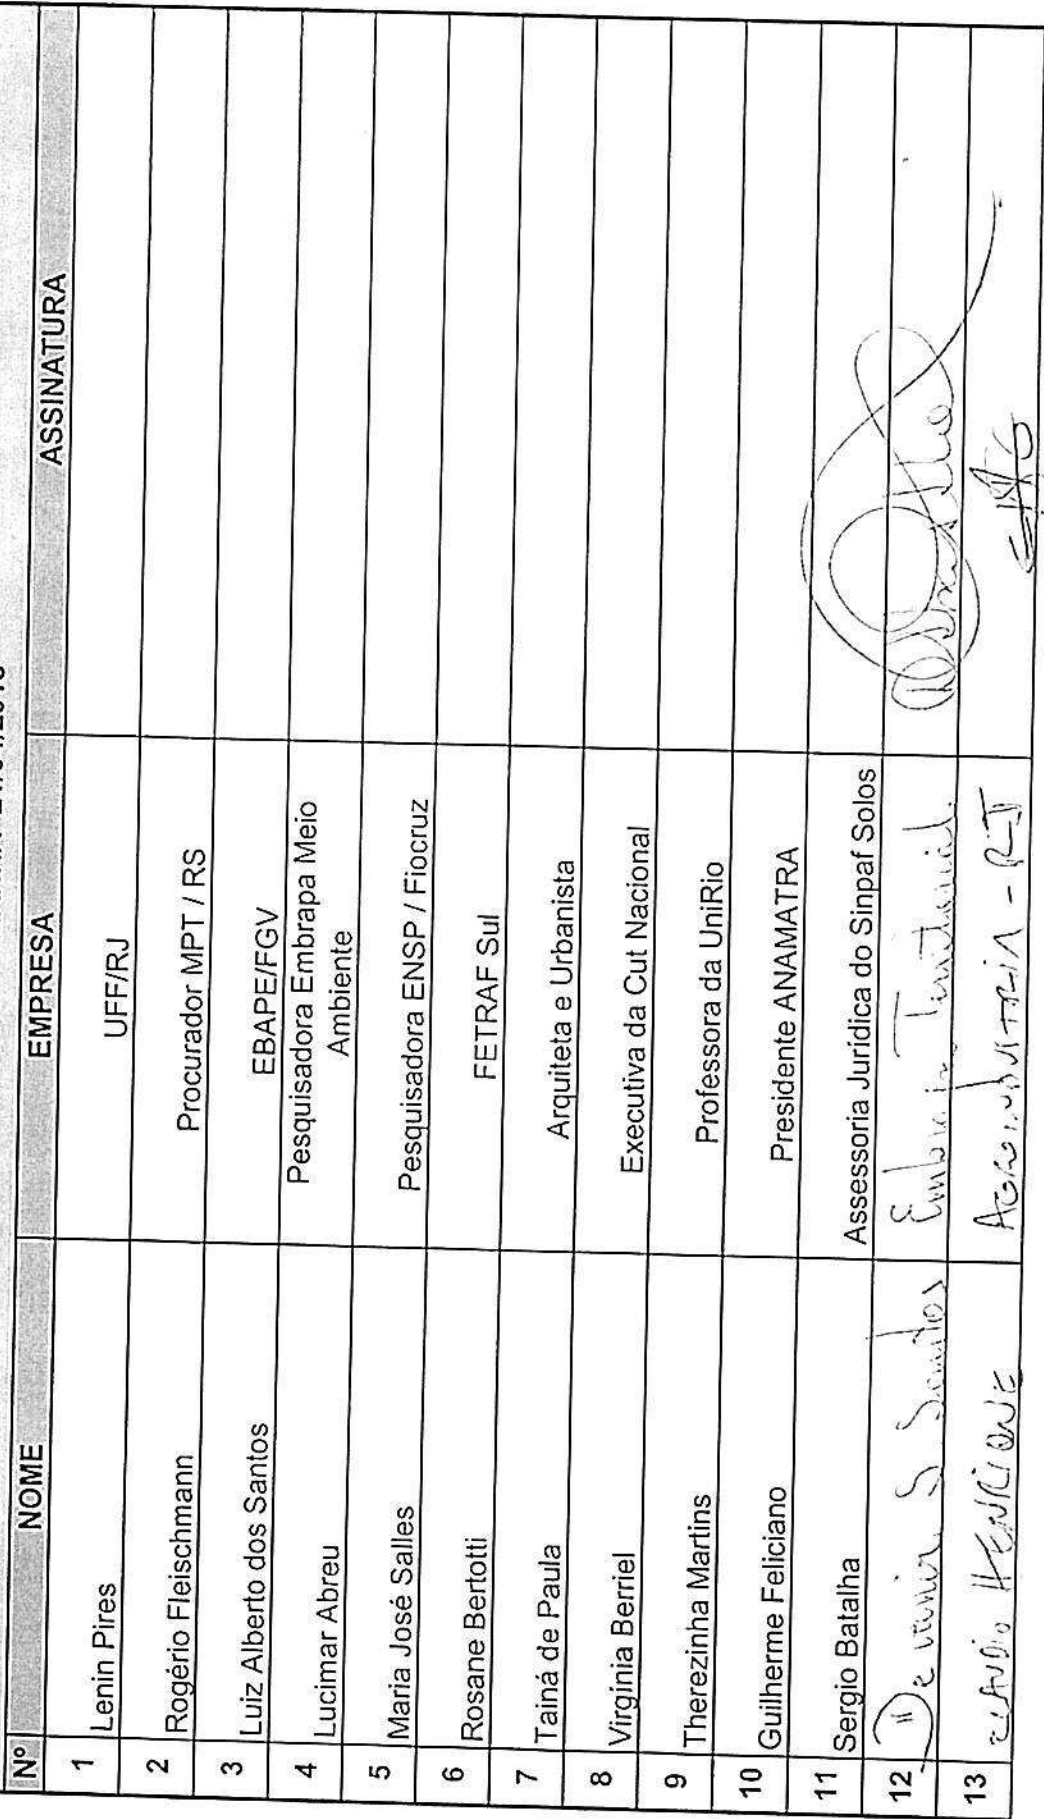 Nº NOME EMPRESA ASSINATURA
1 Lenin Pires UFF/RJ
2 Rogério Fleischmann Procurador MPT / RS
3 Luiz Alberto dos Santos EBAPE/FGV
4 Lucimar Abreu Pesquisadora Embrapa Meio
Ambiente
5 Maria José Salles Pesquisadora ENSP / Fiocruz
6 Rosane Bertotti FETRAF Sul
7 Tainá de Paula Arquiteta e Urbanista
8 Virgínia Berriel Executiva da Cut Nacional
9 Therezinha Martins Professora da UniRio
10 Guilherme Feliciano Presidente ANAMATRA
11 Sergio Batalha Assessoria Jurídica do Sinpaf Solos
12 S Santos Embrapa Territorial
13 CLAUDIO HENRIQUE AGROINDUSTRIA - RJ